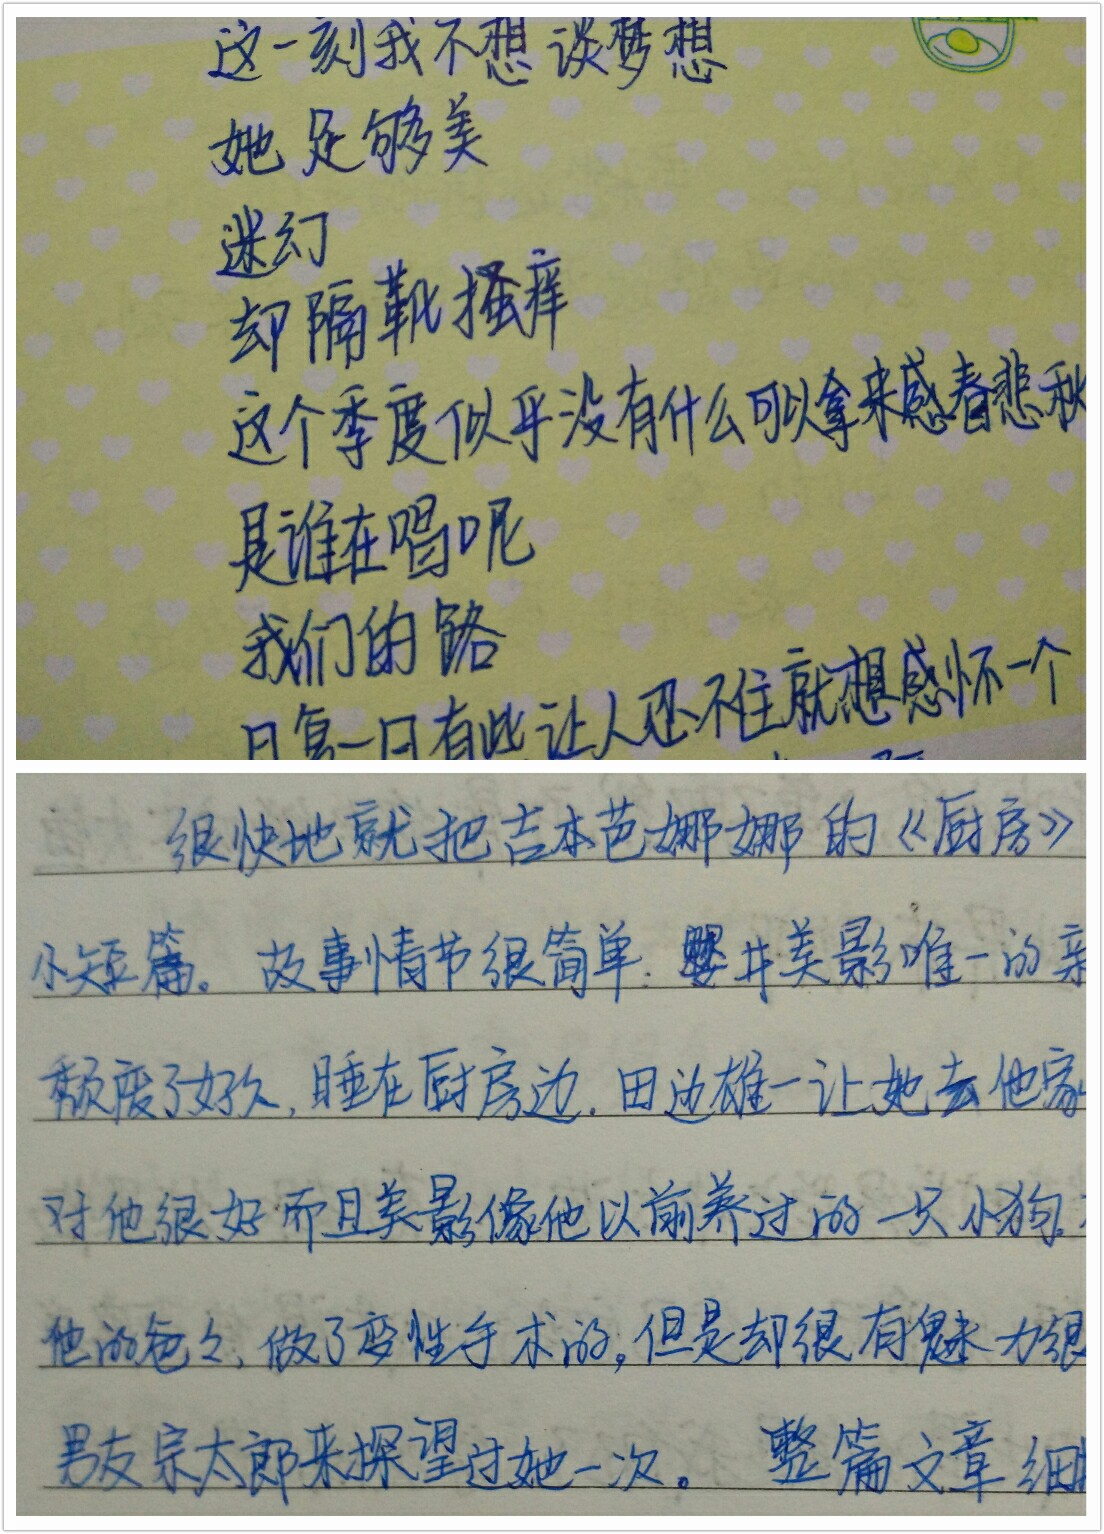 这一刻我不想谈梦想
她足够美
迷幻
却隔靴搔痒
这个季度似乎没有什么可以拿来感春悲秋
是谁在唱呢
我们的路
日复一日有些让人忍不住就想感怀一个
很快地就把吉本芭娜娜的《厨房》
小短篇。故事情节很简单.樱井美影唯一的亲
颓废了好久,睡在厨房边.田边雄一让她去他家
对他很好而且美影像他以前养过的一只小狗.
他的爸々、做了变性手术的,但是却很有魅力很
男友宗太郎来探望过她一次。整篇文章细